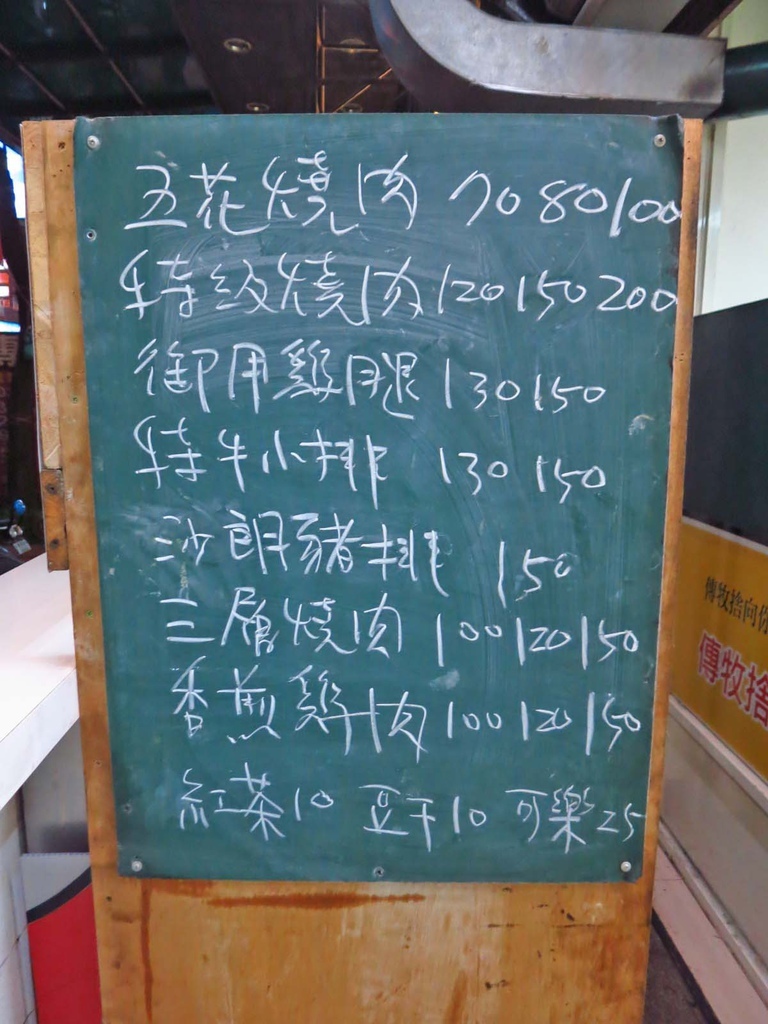 五花燒肉 70 80 100
特級燒肉 120 150 200
御用雞腿 130 150
特牛小排 130 150
沙朗豬排 150
三層燒肉 100 120 150
香煎雞肉 100 120 150
紅茶10 豆干10 可樂25
傳牧捨向你
傳牧捨